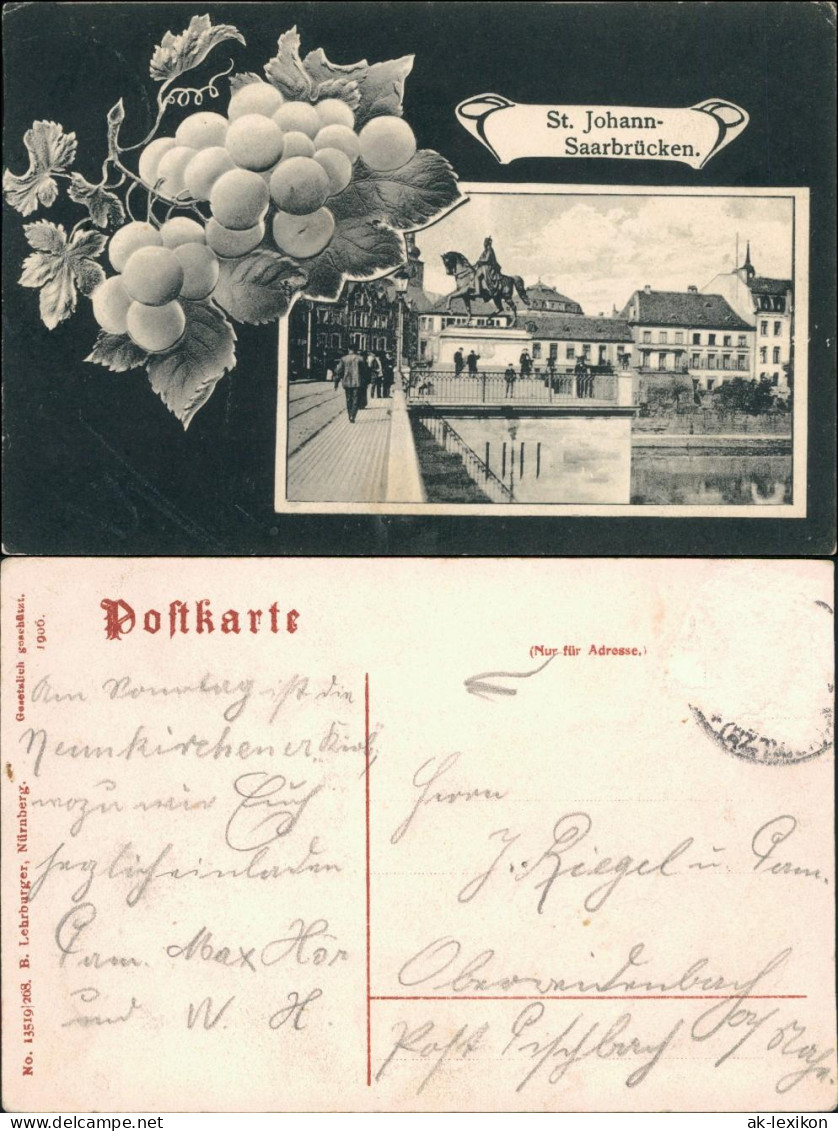 St. Johann-
Saarbrücken.
Postkarte
(Nur für Adresse.)
No. 13519/208. B. Lehrburger, Nürnberg. Gesetzlich geschützt.
1906.
Am Sonntag ist die
Neunkirchener
wozu wir Euch
herzlich einladen
Fam. Max Hör
und W. H.
Herrn
J. Riegel u Fam.
Oberreidenbach
Post Fischbach a/ Nahe.
ak-lexikon